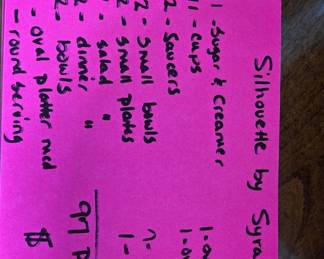 Silhouette by Syra
1 - Sugar & Creamer
11 - cups
2 - Saucers
2 - small bowls
2 - small plates
- salad "
2 - dinner "
2 - bowls
- oval platter med
- round serving
1-
97 P
$